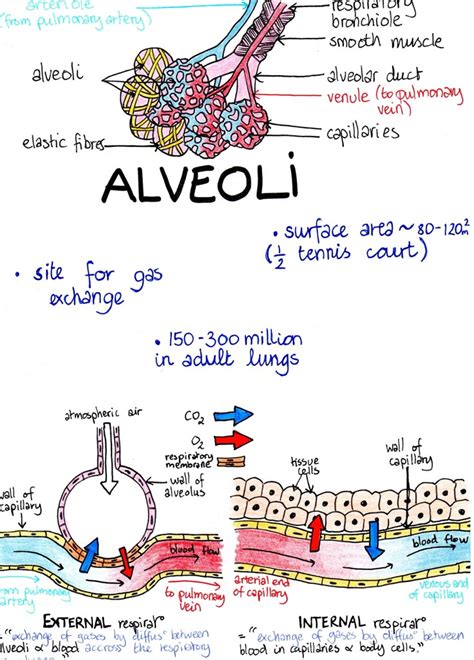 arteriole
(from pulmonary artery)
respiratory
bronchiole
smooth muscle
alveoli
alveolar duct
venule (to pulmonary
vein)
elastic fibres
capillaries
ALVEOLI
• surface area ~ 80-120m²
(½ tennis court)
• site for gas
exchange
• 150-300 million
in adult lungs
atmospheric air
CO₂
O₂
respiratory
membrane
wall of
alveolus
wall of
capillary
blood flow
from pulmonary
artery
to pulmonary
vein
EXTERNAL respirat°
= "exchange of gases by diffus° between
alveoli & blood accross the respiratory
tissue
cells
wall of
capillary
blood flow
arterial end
of capillary
venous end
of capillary
INTERNAL respirat°
= "exchange of gases by diffus° between
blood in capillaries & body cells."